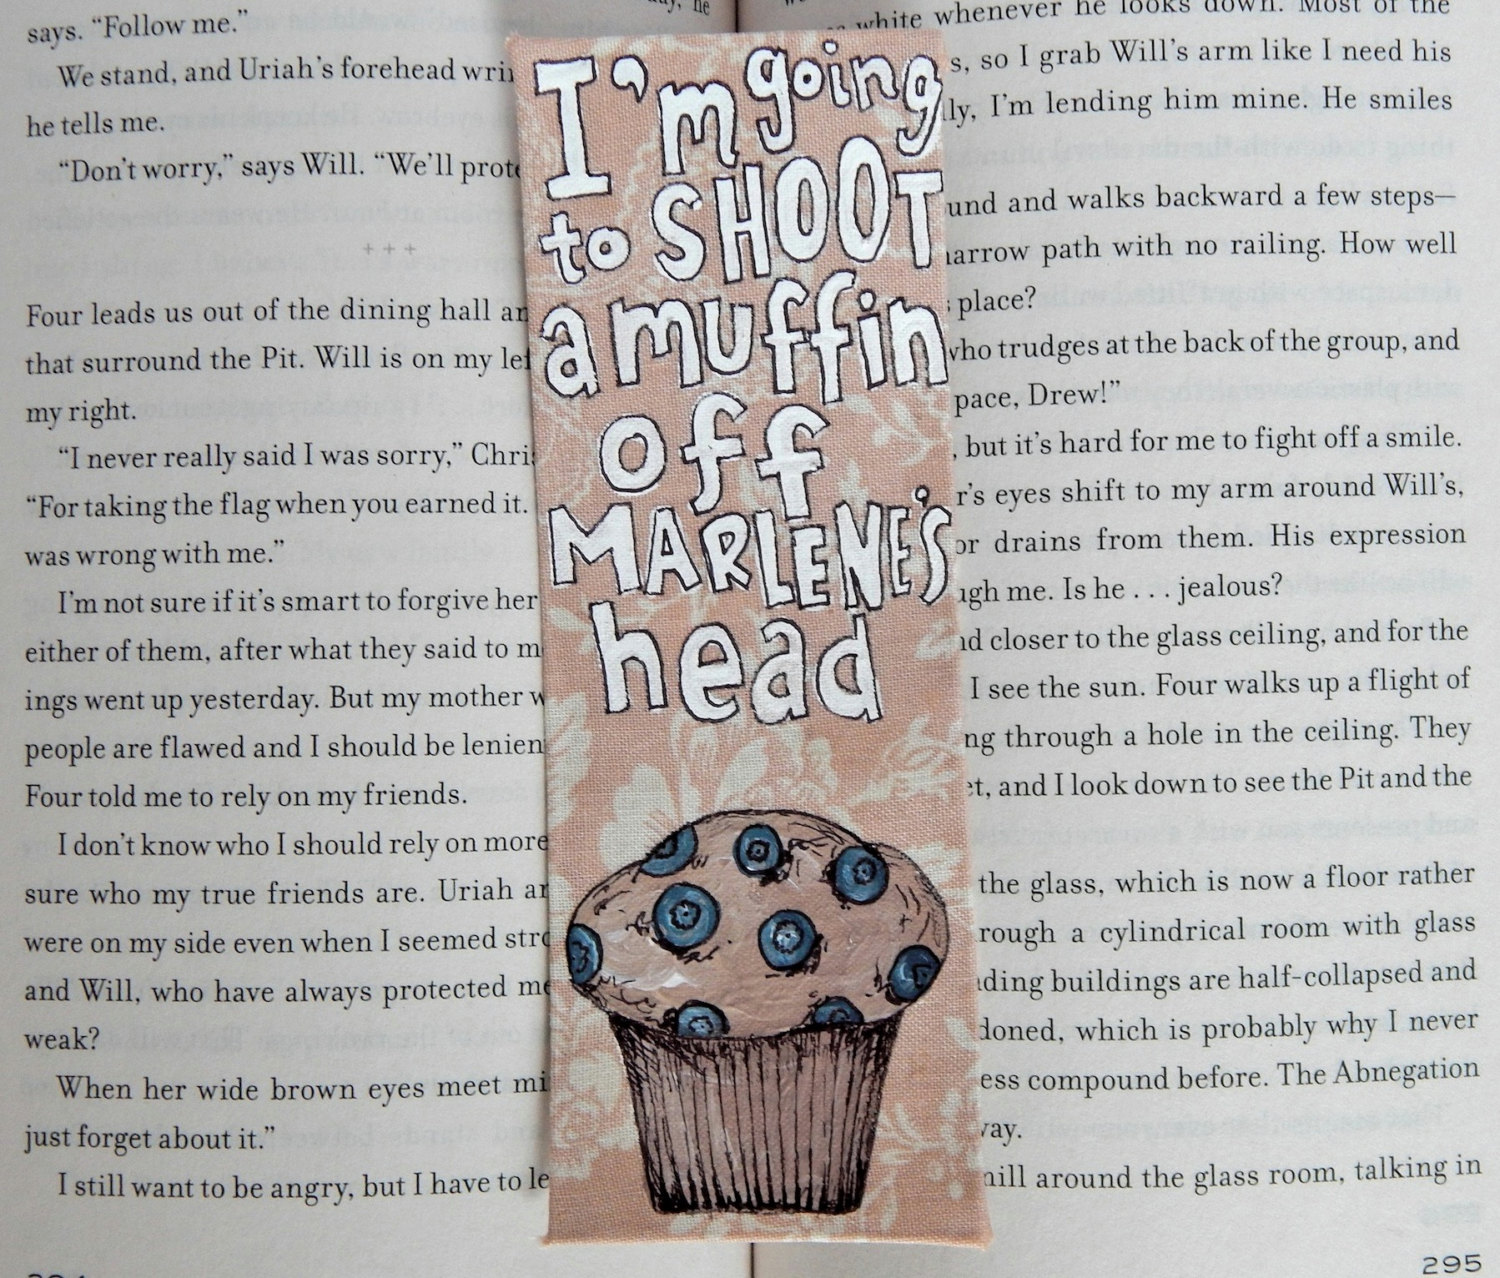 says. “Follow me.”
We stand, and Uriah’s forehead wri
he tells me.
“Don’t worry,” says Will. “We’ll prote
+++
Four leads us out of the dining hall an
that surround the Pit. Will is on my lef
my right.
“I never really said I was sorry,” Chris
“For taking the flag when you earned it.
was wrong with me.”
I’m not sure if it’s smart to forgive her
either of them, after what they said to m
ings went up yesterday. But my mother w
people are flawed and I should be lenien
Four told me to rely on my friends.
I don’t know who I should rely on more
sure who my true friends are. Uriah an
were on my side even when I seemed stro
and Will, who have always protected me
weak?
When her wide brown eyes meet mi
just forget about it.”
I still want to be angry, but I have to le
I'm going
to SHOOT
a muffin
off
MARLENE'S
head
white whenever he looks down. Most of the
s, so I grab Will’s arm like I need his
lly, I’m lending him mine. He smiles
und and walks backward a few steps—
narrow path with no railing. How well
place?
who trudges at the back of the group, and
pace, Drew!”
, but it’s hard for me to fight off a smile.
r’s eyes shift to my arm around Will’s,
or drains from them. His expression
ugh me. Is he . . . jealous?
nd closer to the glass ceiling, and for the
I see the sun. Four walks up a flight of
ng through a hole in the ceiling. They
et, and I look down to see the Pit and the
the glass, which is now a floor rather
rough a cylindrical room with glass
ding buildings are half-collapsed and
doned, which is probably why I never
ess compound before. The Abnegation
way.
mill around the glass room, talking in
295